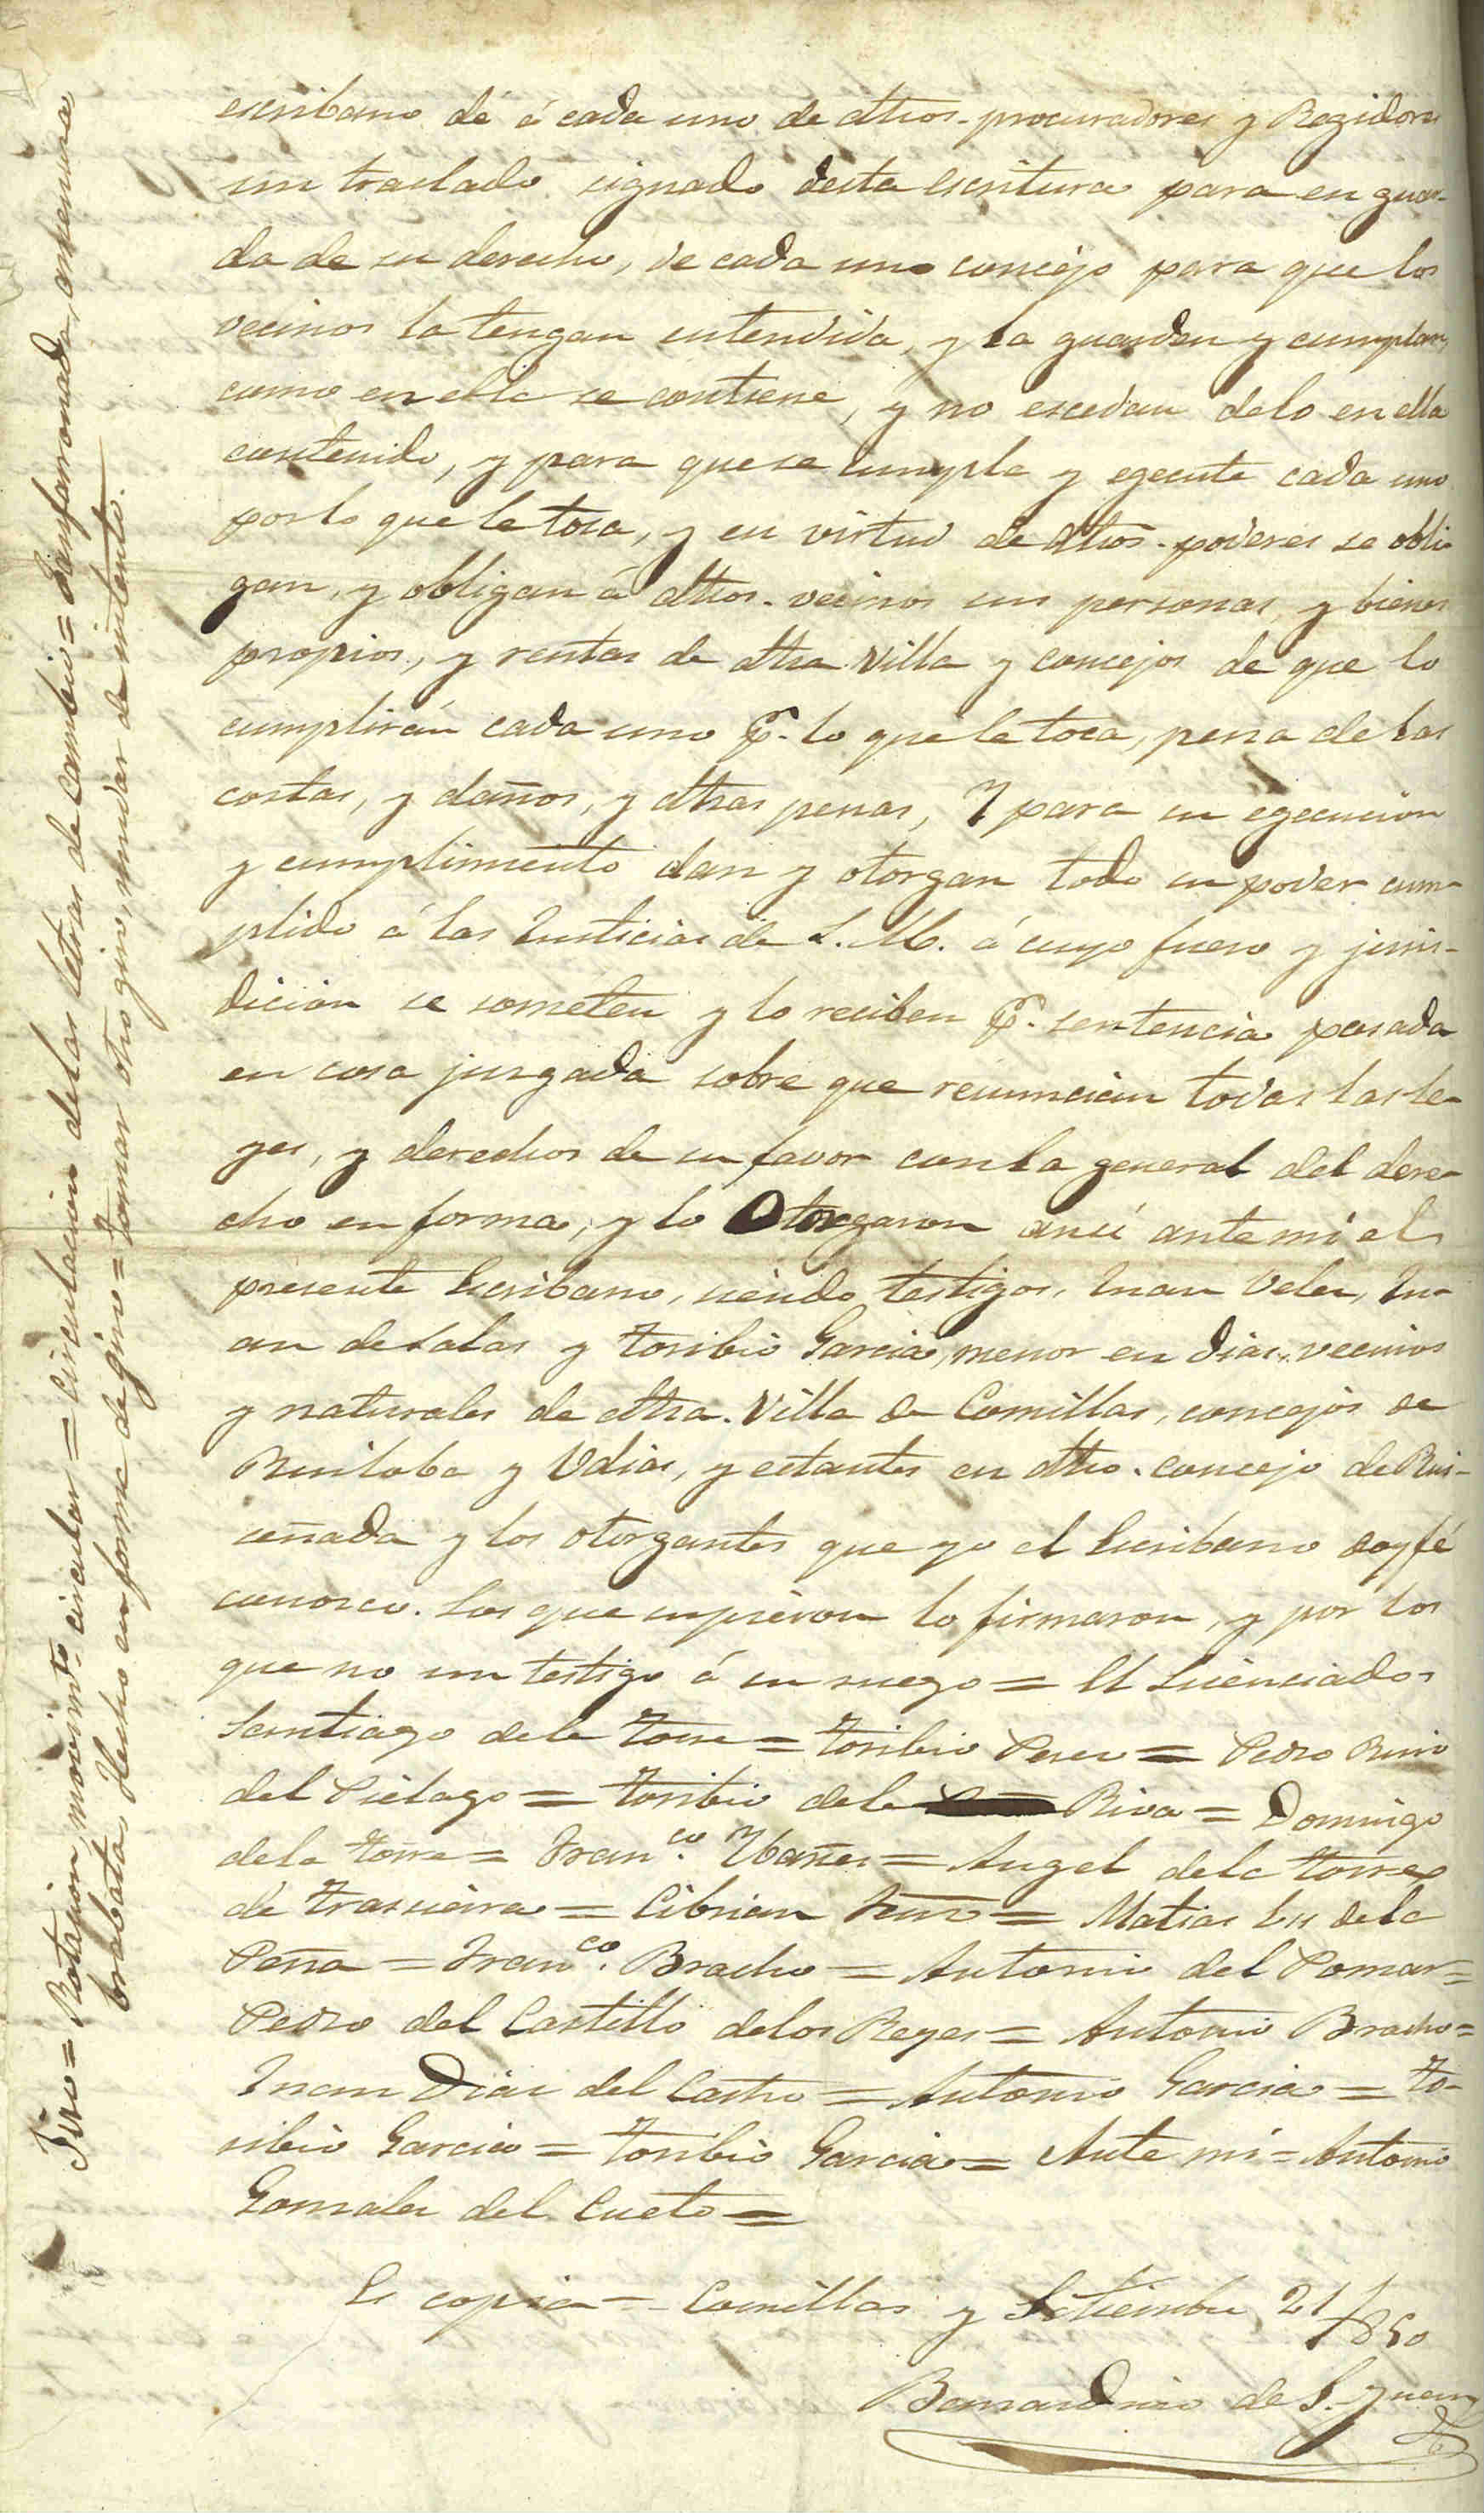 escribano dé á cada uno de dhos. procuradores y Regidores
un traslado signado desta escritura para en guar-
da de su derecho, de cada uno concejo para que los
vecinos la tengan entendida, y la guarden y cumplan
como en ella se contiene, y no escedan delo en ella
contenido, y para que se cumpla y egecute cada uno
por lo que le toca, y en virtud de dhos. poderes se obli-
gan, y obligan á dhos. vecinos sus personas, y bienes
propios, y rentas de dha. Villa y concejos de que lo
cumplirán cada uno p.r lo que le toca, pena de las
costas, y daños, y dhas penas, Y para su egecucion
y cumplimiento dan y otorgan todo su poder cum-
plido á las Justicias de S. M. á cuyo fuero y juris-
dicion se someten y lo reciben p.r sentencia pasada
en cosa juzgada sobre que renuncian todas las le-
yes, y derechos de su favor con la general del dere-
cho en forma, y lo Otorgaron ansi ante mi el
presente Escribano, siendo testigos, Juan Velez, Ju-
an de Salas y Toribio Garcia, menor en dias, vecinos
y naturales de dha. Villa de Comillas, concejos de
Ruiloba y Udias, y estantes en dho. concejo de Rui-
señada y los otorgantes que yo el Escribano doy fé
conozco. Los que supieron lo firmaron, y por los
que no un testigo á su ruego = El Licenciado
Santiago dela Torre = Toribio Perez = Pedro Ruiz
del Piélago = Toribio dela Riva = Domingo
dela Torre = Fran.co Ybañez = Angel dela Torre
de Trasierra = Cibrian = Matias dela
Peña = Fran.co Bracho = Antonio del Pomar =
Pedro del Castillo delos Reyes = Antonio Bracho =
Juan Diaz del Castro = Antonio Garcia = To-
ribio Garcia = Toribio Garcia = Ante mi = Antonio
Gonzalez del Cueto =
Es copia = Comillas y Setiembre 21/1850
Bernardino de S. Juan
Jiro = Rotasion, movimto. circular = circulacion delas letras de cambio = Fanfarronada,
brabata, Hecho en forma de giro = Tomar otro giro, mudar de intento.